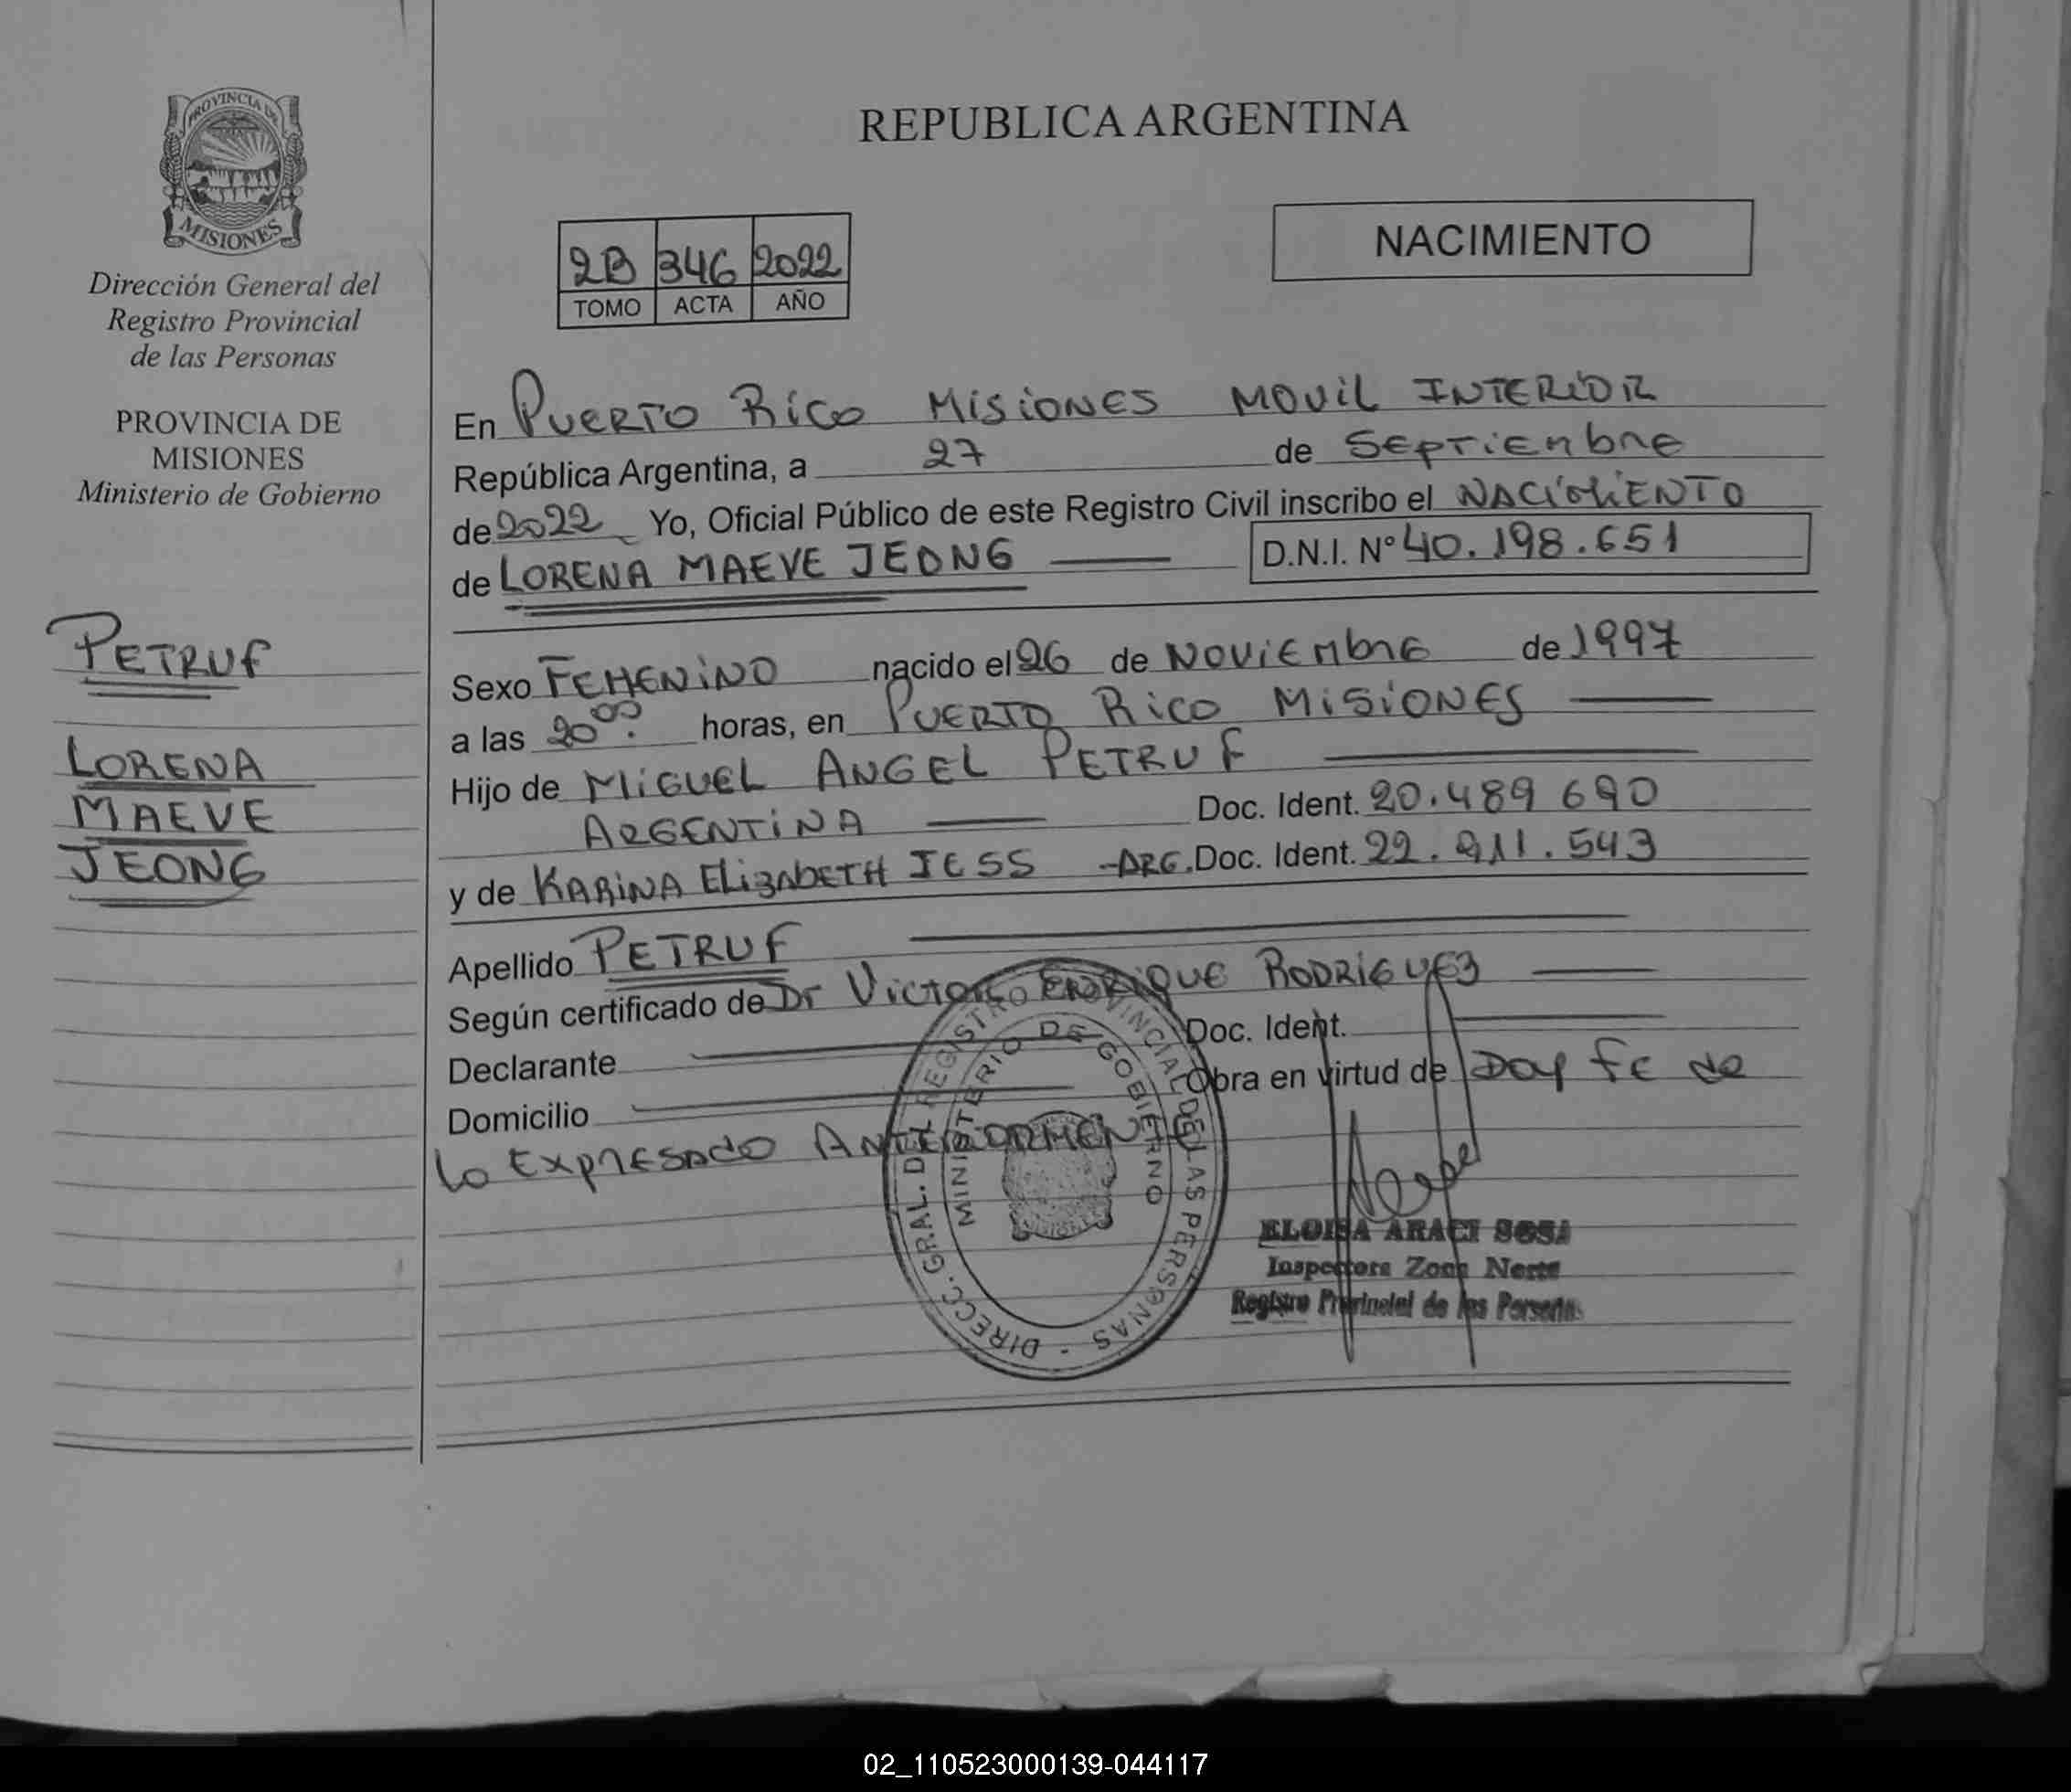 PROVINCIA DE
MISIONES
Dirección General del
Registro Provincial
de las Personas
PROVINCIA DE
MISIONES
Ministerio de Gobierno
PETRUF
LORENA
MAEVE
JEONG
REPUBLICA ARGENTINA
NACIMIENTO
2B 346 2022
TOMO ACTA AÑO
En PUERTO RICO MISIONES MOVIL INTERIOR
República Argentina, a 27 de SEPTIEMBRE
de 2022 Yo, Oficial Público de este Registro Civil inscribo el NACIMIENTO
de LORENA MAEVE JEONG D.N.I. N° 40.198.651
Sexo FEMENINO nacido el 26 de NOVIEMBRE de 1997
a las 20 00 horas, en PUERTO RICO MISIONES
Hijo de MIGUEL ANGEL PETRUF
ARGENTINA Doc. Ident. 20.489 690
y de KARINA ELIZABETH JESS -ARG. Doc. Ident. 22. 911. 543
Apellido PETRUF
Según certificado de Dr VICTOR ENRIQUE RODRIGUEZ
Declarante Doc. Ident.
Domicilio Obra en virtud de Doy fe de
lo EXPRESADO ANTERIORMENTE
DIRECC. GRAL. DEL REGISTRO PROVINCIAL DE LAS PERSONAS -
MINISTERIO DE GOBIERNO
ELOISA ARACI SOSA
Inspectora Zona Norte
Registro Provincial de las Personas
02_110523000139-044117